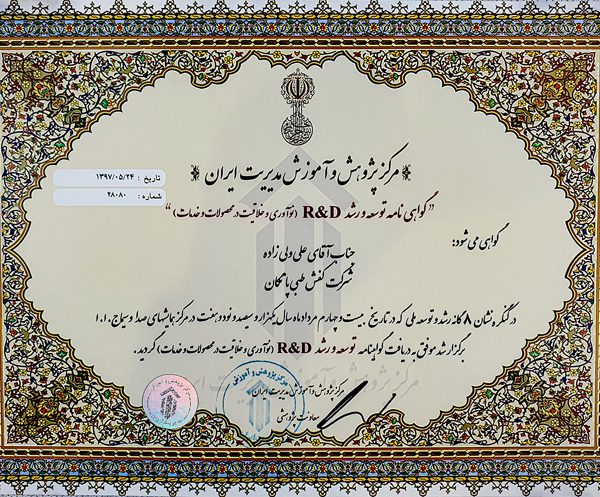 مرکز پژوهش و آموزش مدیریت ایران
تاریخ : ۱۳۹۷/۰۵/۲۴
شماره : ۲۸۰۸۰
"گواهی نامه توسعه و رشد R&D (نوآوری و خلاقیت در محصولات و خدمات)"
گواهی می شود:
جناب آقای علی ولی زاده
شرکت کفش طبی پامکان
در کنگره نشان ۸ گانه رشد و توسعه ملی که در تاریخ بیست و چهارم مرداد ماه سال یکهزار و سیصد و نود و هفت در مرکز همایشهای صدا و سیما ج.ا.ا
برگزار شد موفق به دریافت گواهینامه توسعه و رشد R&D (نوآوری و خلاقیت در محصولات و خدمات) گردید.
مرکز پژوهش و آموزش مدیریت ایران
معاونت پژوهشی
مرکز پژوهش و آموزش